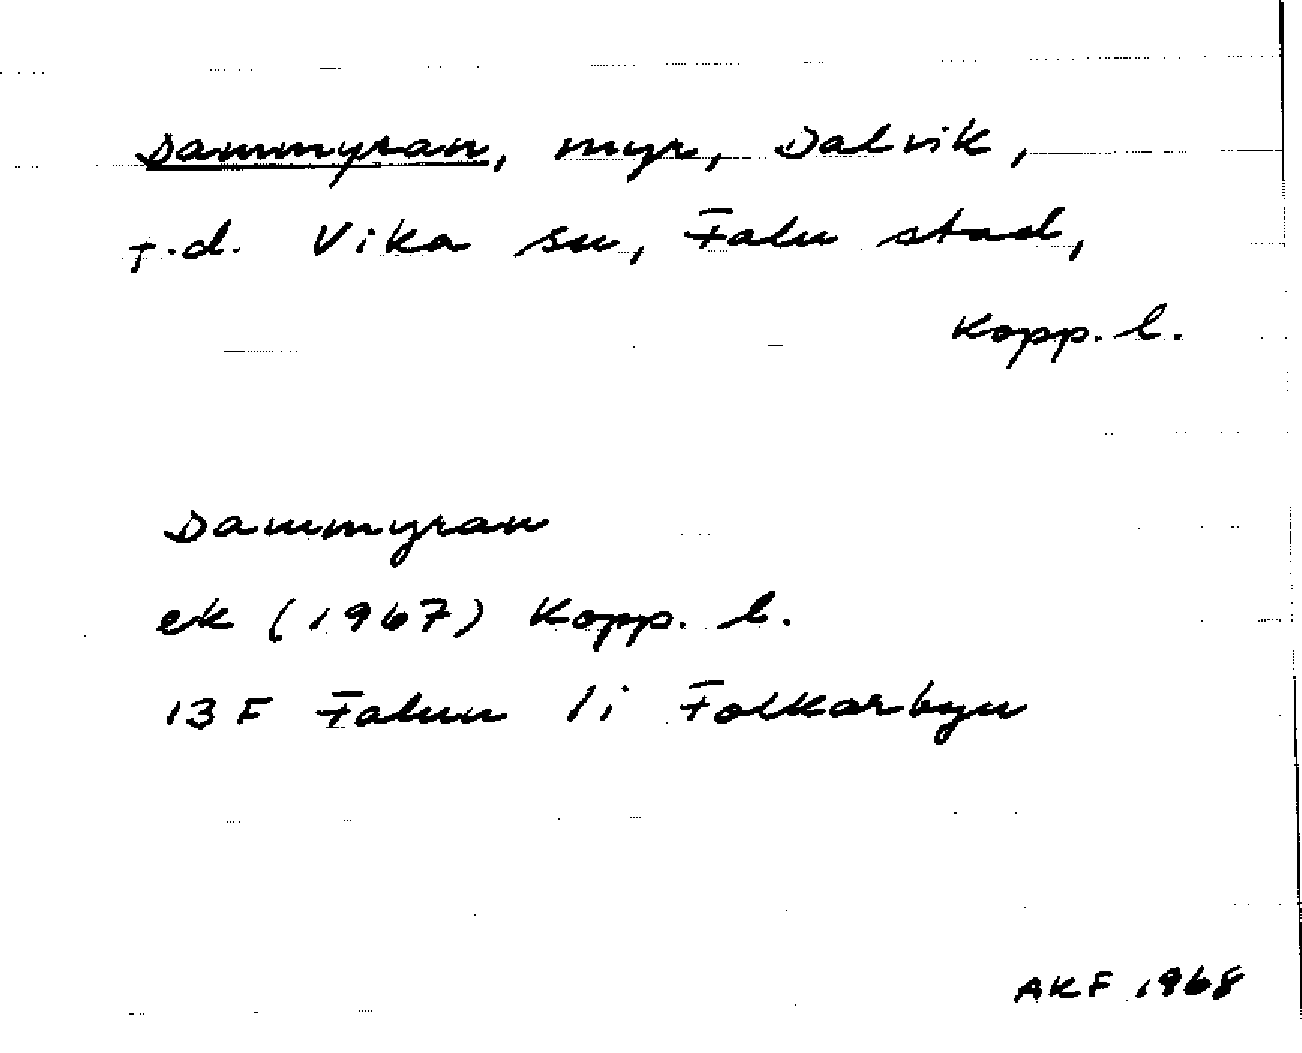 Dammyran, myr, Dalvik,
f.d. Vika sn, Falu stad,
Kopp. l.
Dammyran
ek (1967) Kopp. l.
13F Falun 1i Folkarbyn
AKF 1968